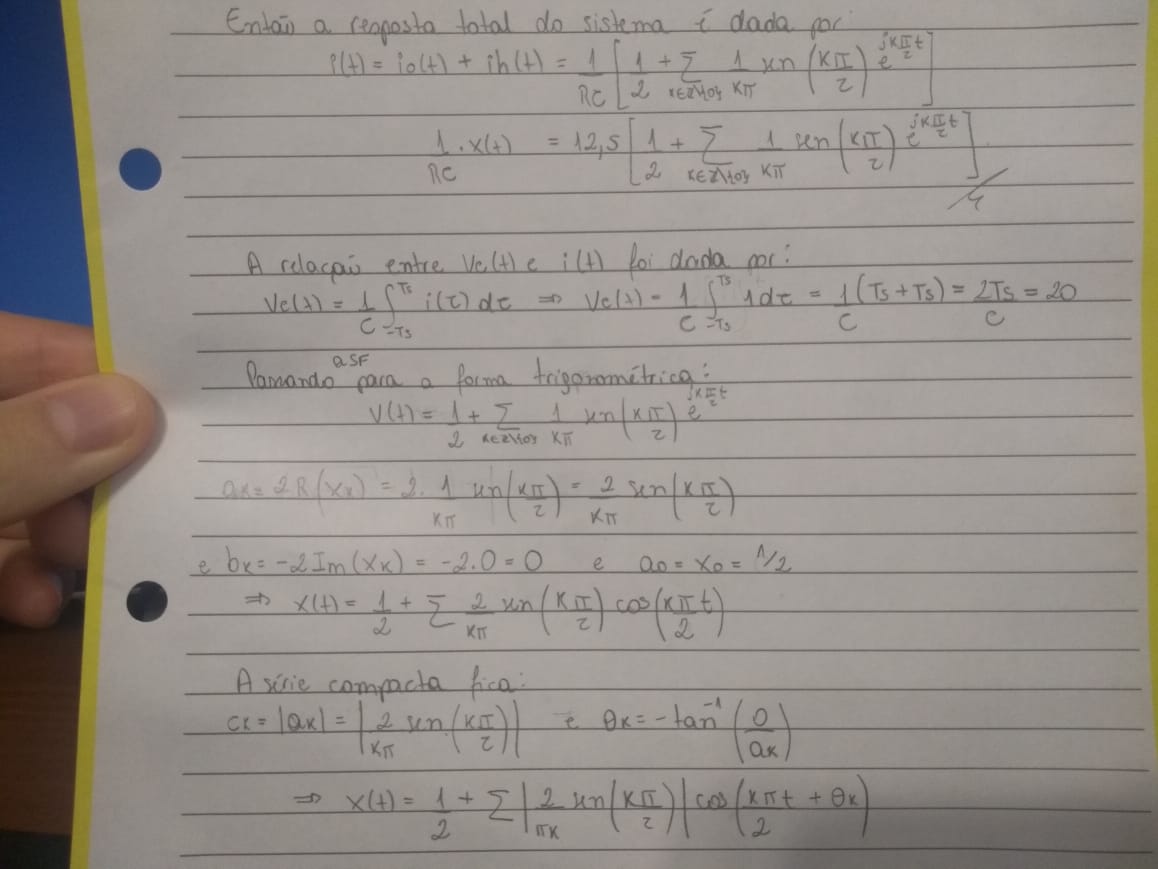 Então a resposta total do sistema é dada por:
i(t) = io(t) + ih(t) = 1/RC [1/2 + Σ K∈Z\{0} 1/Kπ sen(Kπ/2) e^(jKπ/2 t)]
1/RC . x(t) = 12,5 [1/2 + Σ K∈Z\{0} 1/Kπ sen(Kπ/2) e^(jKπ/2 t)]
A relação entre Vc(t) e i(t) foi dada por:
Vc(t) = 1/C ∫_-Ts^Ts i(τ) dτ ⇒ Vc(t) = 1/C ∫_-Ts^Ts 1dτ = 1/C (Ts + Ts) = 2Ts/C = 20
Passando a SF para a forma trigonométrica:
V(t) = 1/2 + Σ K∈Z\{0} 1/Kπ sen(Kπ/2) e^(jKπ/2 t)
aK = 2R(XK) = 2. 1/Kπ sen(Kπ/2) = 2/Kπ sen(Kπ/2)
e bK = -2Im(XK) = -2.0 = 0 e a0 = X0 = 1/2
⇒ x(t) = 1/2 + Σ 2/Kπ sen(Kπ/2) cos(Kπt/2)
A série compacta fica:
cK = |aK| = |2/Kπ sen(Kπ/2)| e θK = -tan⁻¹(0/aK)
⇒ x(t) = 1/2 + Σ |2/πK sen(Kπ/2)| cos(Kπt/2 + θK)